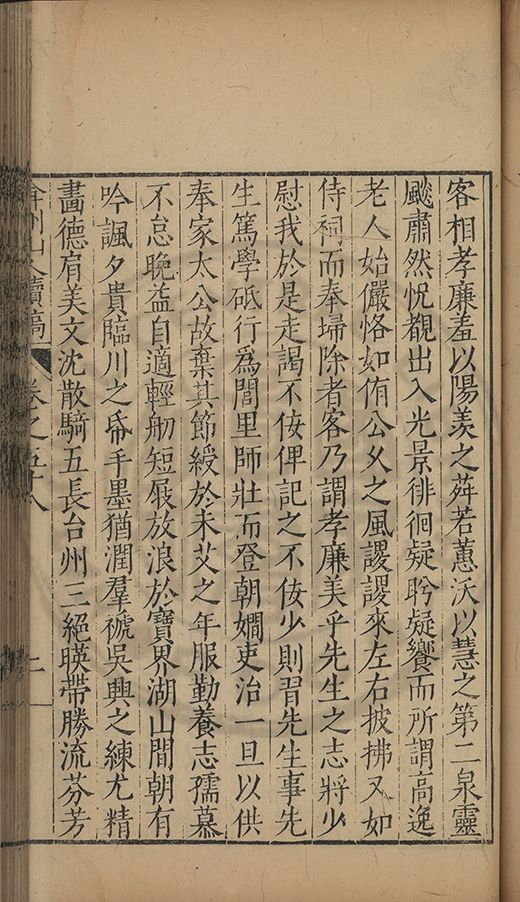 客相孝廉羞以陽羨之荈若蕙沃以慧之第二泉靈
颷肅然怳覩出入光景徘徊疑肸疑饗而所謂高逸
老人始儼恪如侑公乆之風謖謖來左右披拂又如
侍祠而奉埽除者客乃謂孝廉美乎先生之志將少
慰我於是走謁不佞俾記之不佞少則習先生事先
生篤學砥行爲閭里師壯而登朝嫺吏治一旦以供
奉家太公故棄其節綬於未艾之年服勤養志孺慕
不怠晚益自適輕舠短屐放浪於寶界湖山間朝有
吟諷夕貴臨川之帋手墨猶潤羣褫吳興之練尤精
畵德肩美文沈散騎五長台州三絕暎帶勝流芬芳
弇州山人續稿
卷之五十八